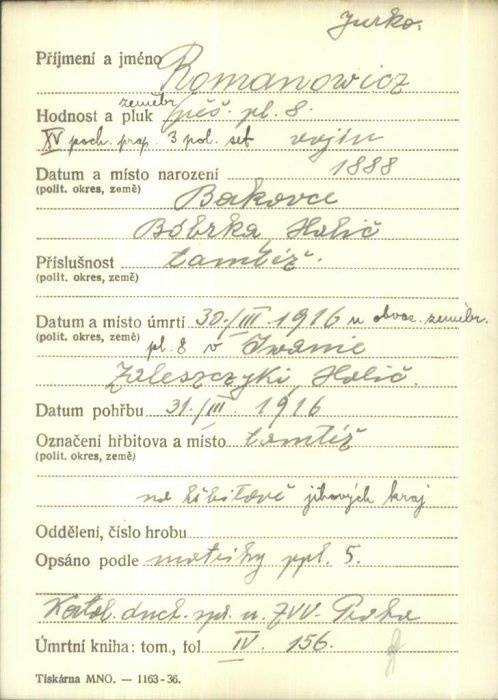 Jurko.
Příjmení a jméno Romanowicz
Hodnost a pluk zeměbr. pěš. pl. 8.
XV poch. prap. 3 pol. set vojín
Datum a místo narození 1888
(polit. okres, země)
Bakovce
Bóbrka, Halič
Příslušnost tamtéž.
(polit. okres, země)
Datum a místo úmrtí 30./III. 1916 u obvaz. zeměbr.
(polit. okres, země)
pl. 8 v Iwanie
Zaleszczyki, Halič.
Datum pohřbu 31./III. 1916
Označení hřbitova a místo tamtéž
(polit. okres, země)
na hřbitově
Oddělení, číslo hrobu
Opsáno podle matriky ppl. 5.
Katol. duch. spr. u ZVV. Praha
Úmrtní kniha: tom., fol IV. 156.
Tiskárna MNO. — 1163-36.